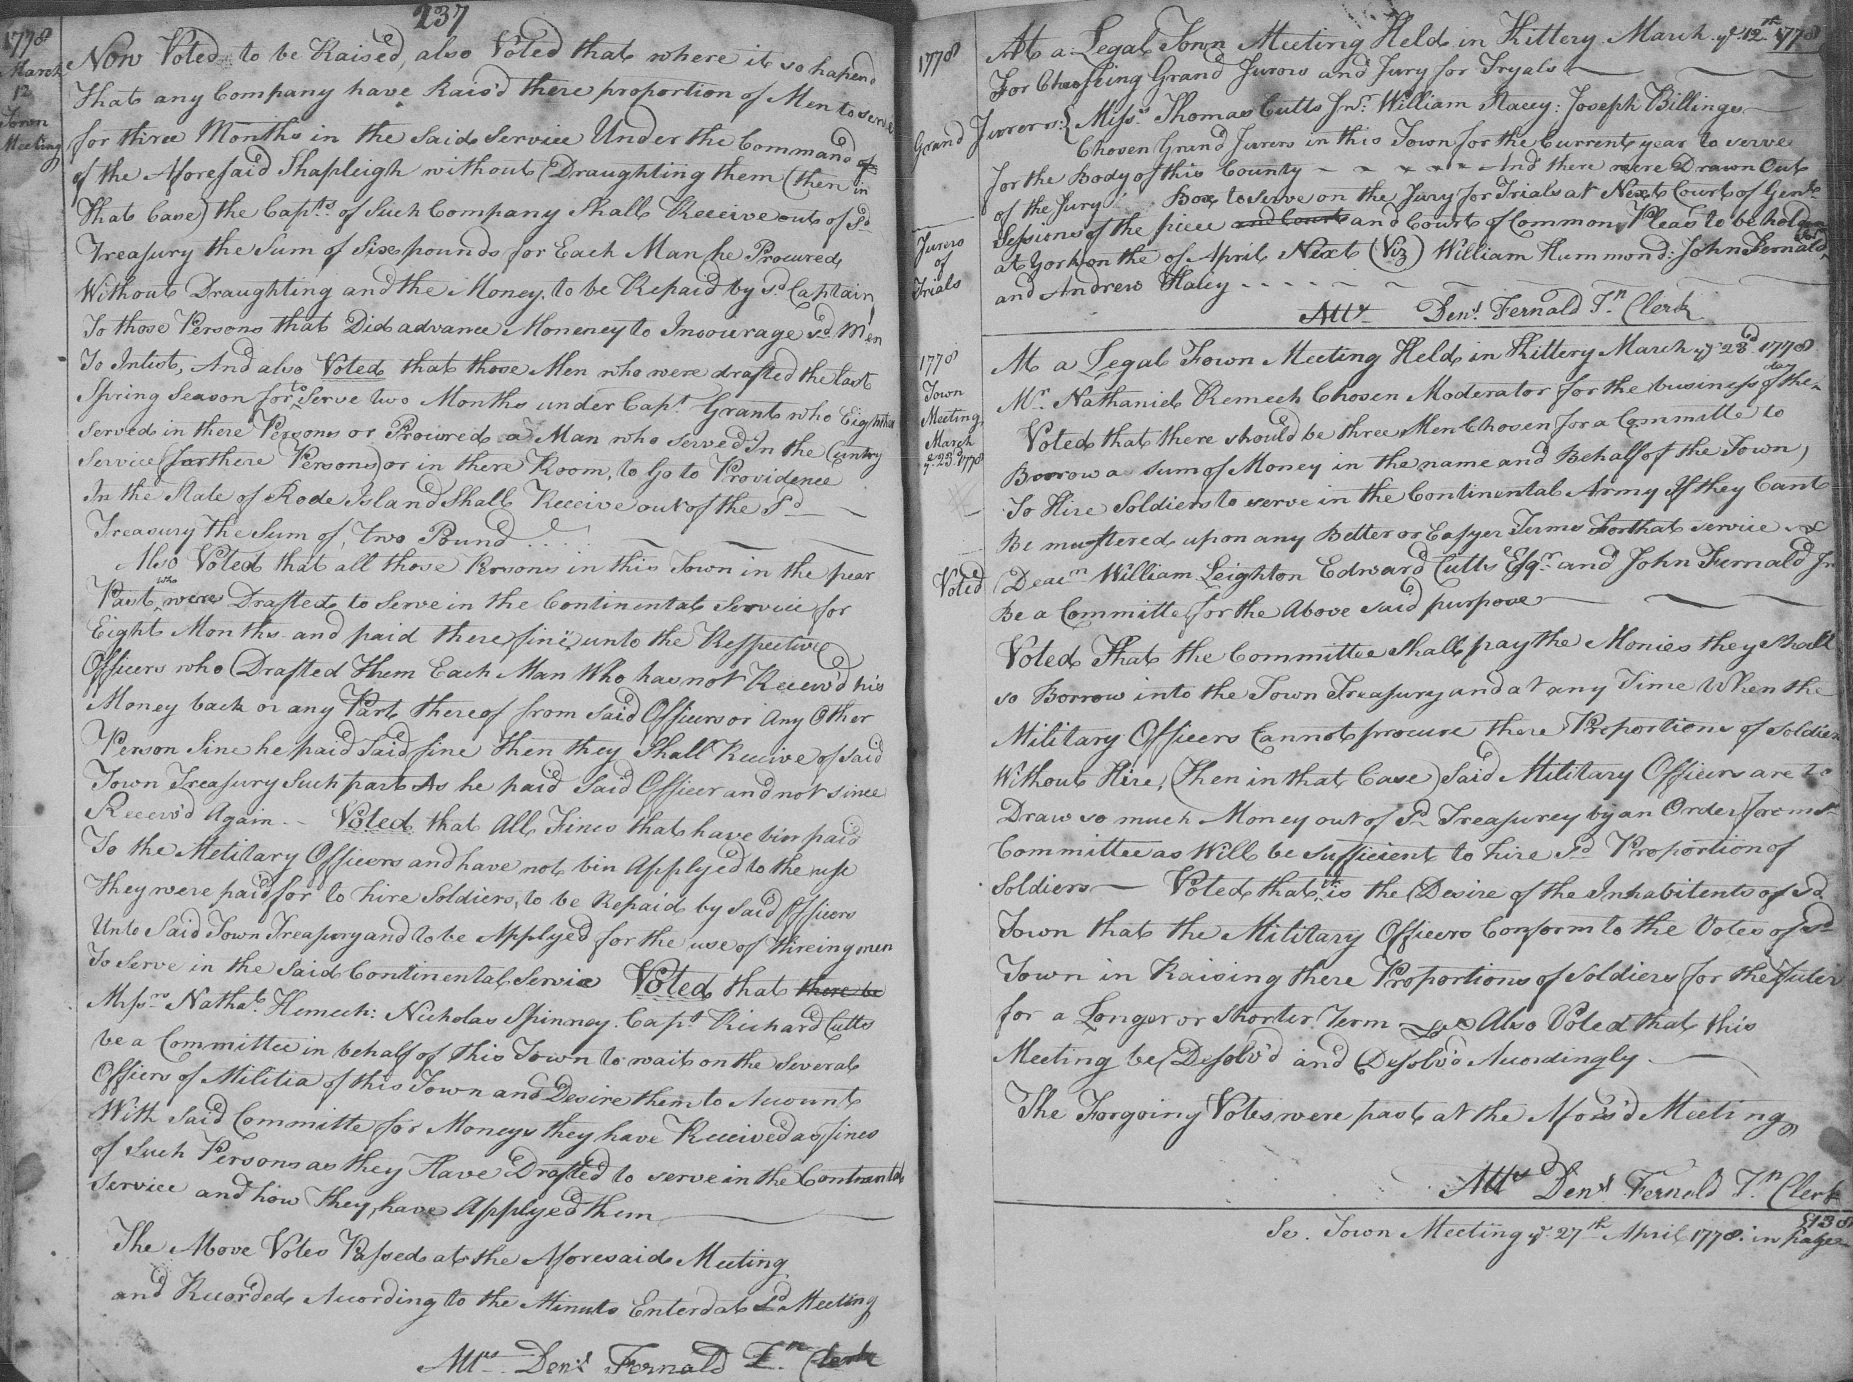 237
1778
March
12
Town
Meeting
Now Voted to be Raised, also Voted that where it so hapend
that any Company have Rais'd there proportion of Men to serve
for three Months in the said Service Under the Command of
of the Aforesaid Shapleigh without Draughting them (then in
that Case) the Capts of Such Company Shall Receive out of sd
Treasury the Sum of Six pounds for Each Man he Procured
Without Draughting and the Money to be Repaid by sd Captain
To those Persons that Did advance Moneney to Incourage sd Men
To Inlist, And also Voted that those Men who were drafted the last
Spring Season for to Serve two Months under Capt Grant who Eighther
Served in there Persons or Procured a Man who served In the Cuntry
Service (for there Persons) or in there Room, to Go to Providence
In the State of Rode Island Shall Receive out of the sd
Treasury the Sum of, two Pound
Also Voted that all those Persons in this Town in the year
Past who were Drafted to Serve in the Continental Service for
Eight Months and paid there fine unto the Respective
Officers who Drafted them Each Man Who has not Receiv'd his
Money back or any Part thereof from Said Officers or Any Other
Person Sine he paid Said fine then they Shall Receive of said
Town Treasury Such part As he paid Said Officer and not since
Receiv'd Again - Voted that All Fines that have bin paid
To the Metitary Officers and have not bin Applyed to the use
they were paid for to hire Soldiers, to be Repaid by Said Officers
Unto Said Town Treasury and to be Applyed for the use of Hireing men
To Serve in the Said Continental Service Voted that there be
Messrs Nathal Kemech: Nickolas Spinney. Capt Richard Cutts
be a Committee in behalf of this Town to wait on the Several
Officers of Militia of this Town and Desire them to Account
With Said Committe for Moneys they have Received as fines
of Such Persons as they Have Drafted to serve in the Contnental
Service and how they have Applyed them
The Above Votes Passed at the Aforesaid Meeting
and Recorded According to the Minuts Enterd at Sd Meeting
Attr Denl Fernald Tn Clerk
1778
At a Legal Town Meeting Held in Kittery March ye 12th 1778
For Chusseing Grand Jurors and Jury for Tryals
Grand Jurrors: { Messrs Thomas Cutts Jnr. William Stacey: Joseph Billings
Chosen Grand Jurors in this Town for the Current year to serve
for the Body of this County And there were Drawn Out
of the Jury Box to serve on the Jury for Trials at Next Court of Genl
Jurors
of
Trials
Sessions of the piece and Court and Court of Common Pleas to be holden
at York on the of April Next (Viz) William Hummond: John Fernald Jnr
and Andrew Haley
Attr Denl. Fernald Tn Clerk
1778
Town
Meeting
March
ye 23d 1778
At a Legal Town Meeting Held in Kittery March ye 23d 1778
Mr. Nathaniel Kemech Chosen Moderator for the business of the day
Voted that there should be three Men Chosen for a Committe to
Borrow a Sum of Money in the name and Behalf of the Town,
To Hire Soldiers to serve in the Continental Army If they Cant
Be mustered upon any Better or Easyer Terms For that service
Voted
Deacn William Leighton Edward Cutts Esqr and John Fernald Jnr
Be a Committe for the Above said purpose
Voted That the Committee shall pay the Monies they shall
so Borrow into the Town Treasury and at any Time When the
Military Officers Cannot procure there Preportions of Soldiers
Without Hire, (then in that Case) Said Military Officers are to
Draw so much Money out of Sd Treasurey by an Order from sd
Committee as Will be sufficient to hire sd Proportion of
Soldiers - Voted that it is the Desire of the Inhabitents of sd
Town that the Military Officers Conform to the Votes of sd
Town in Raising there Proportions of Soldiers for the Futer
for a Longer or Shorter Term Also Voted that this
Meeting be Desolv'd and Desolv'd Accordingly
The Forgoing Votes were past at the Afores'd Meeting
Attr Denl Fernald Tn Clerk
Se. Town Meeting ye 27th April 1778: in page 138